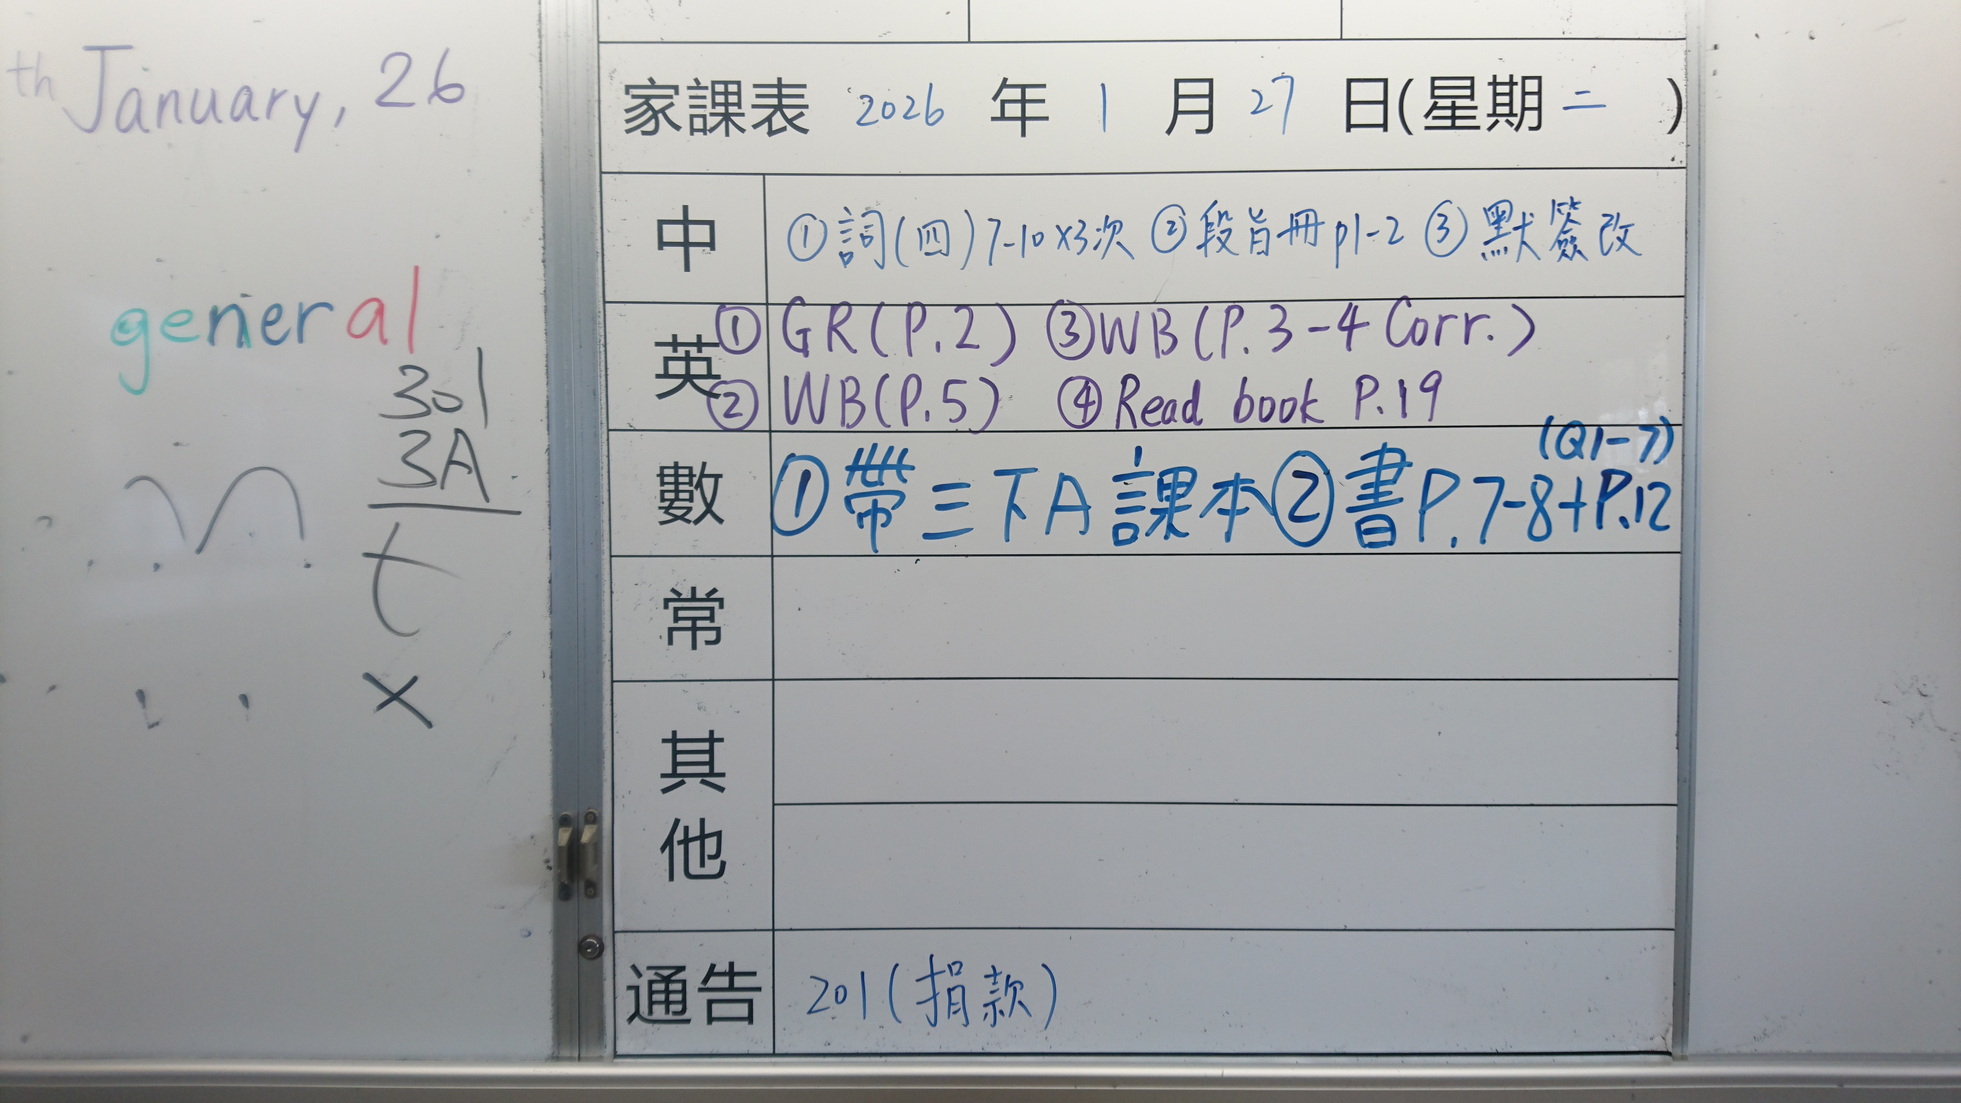 th January, 26
general
301
3A
家課表 2026 年 1 月 27 日(星期二)
中 ①詞(四)7-10×3次 ②段旨冊p1-2 ③默簽改
英 ①GR(P.2) ③WB(P.3-4 Corr.)
②WB(P.5) ④Read book P.19
(Q1-7)
數 ①帶三下A課本②書P.7-8+P.12
常
其他
通告 201(捐款)